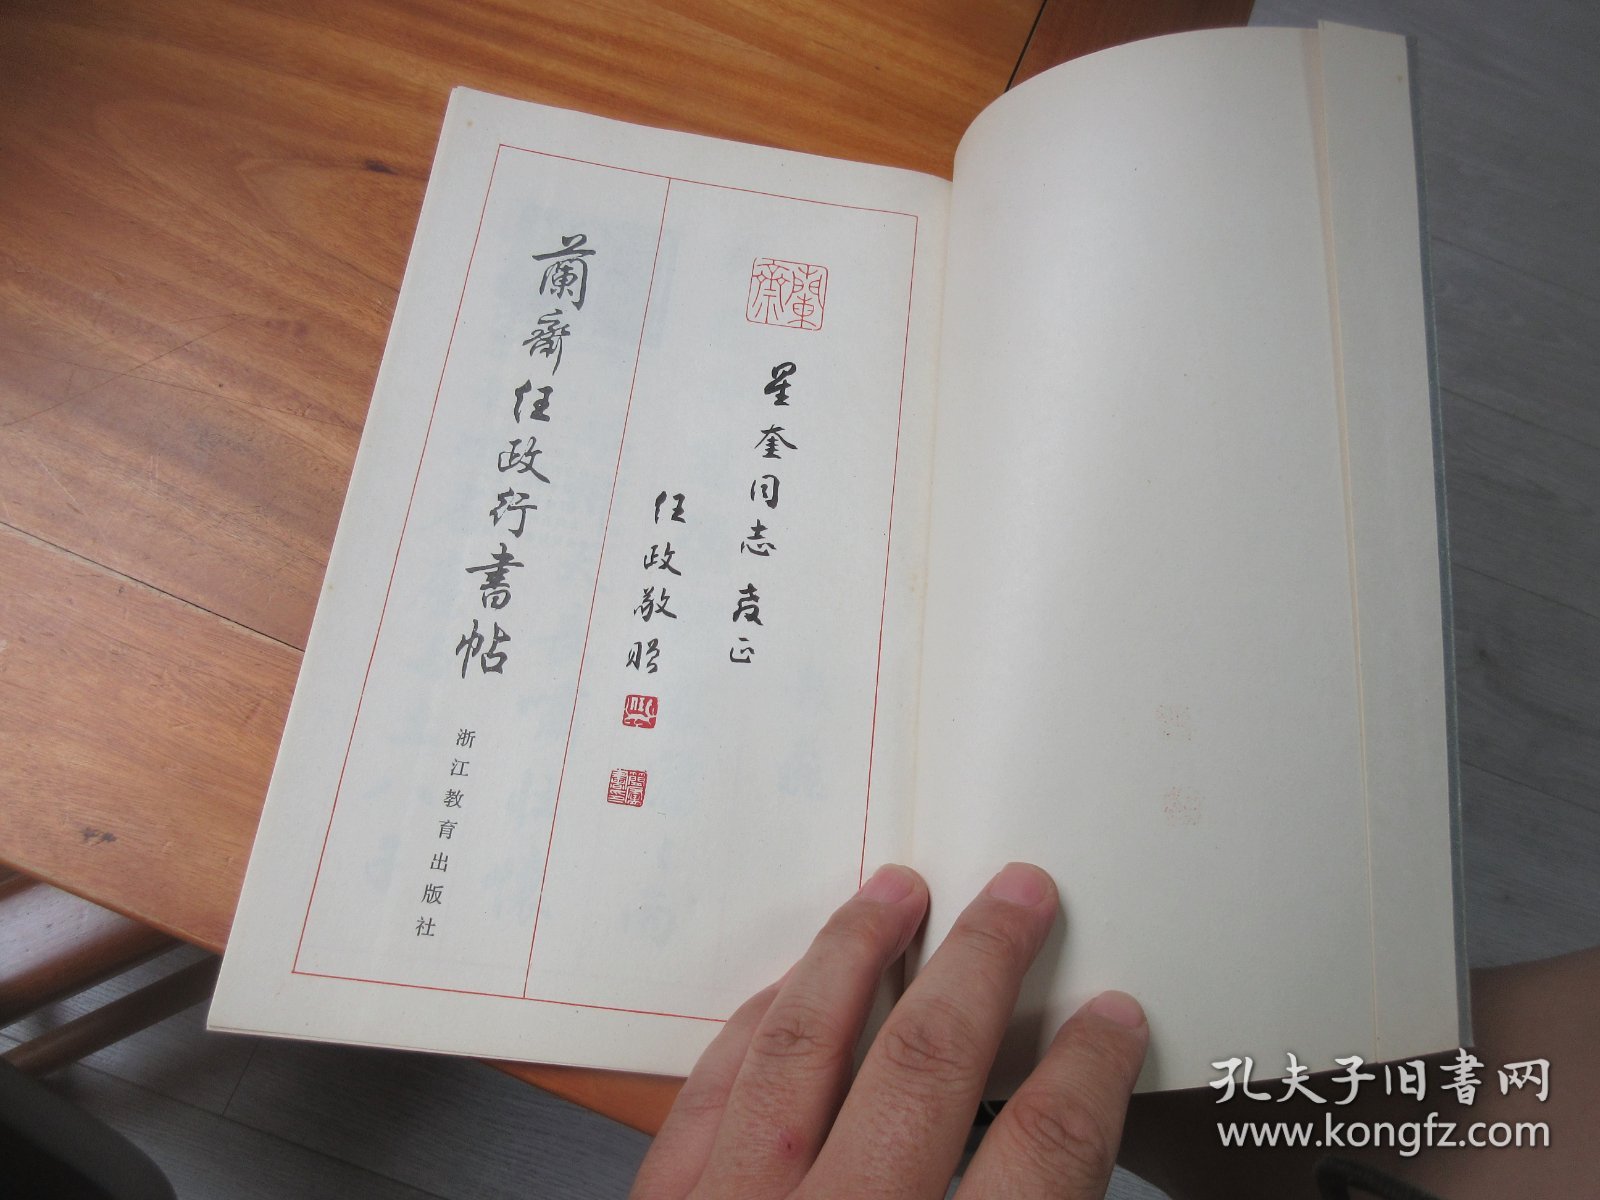 蘭齋
星奎同志教正
任政敬贈
蘭齋任政行書帖
浙江教育出版社
孔夫子旧书网
www.kongfz.com